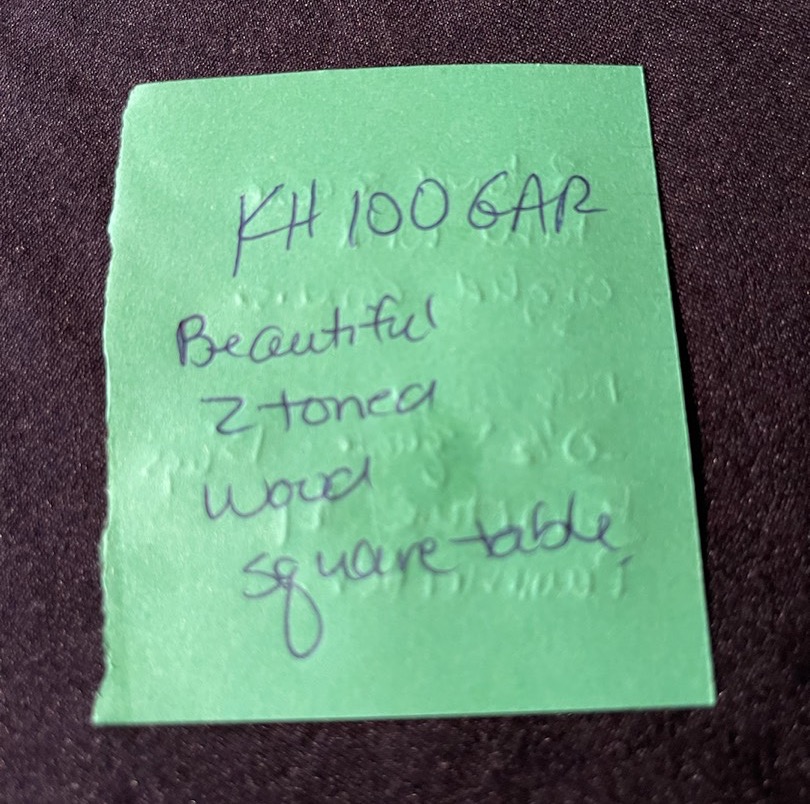 KH 100 GAR
Beautiful
2 toned
wood
square table.